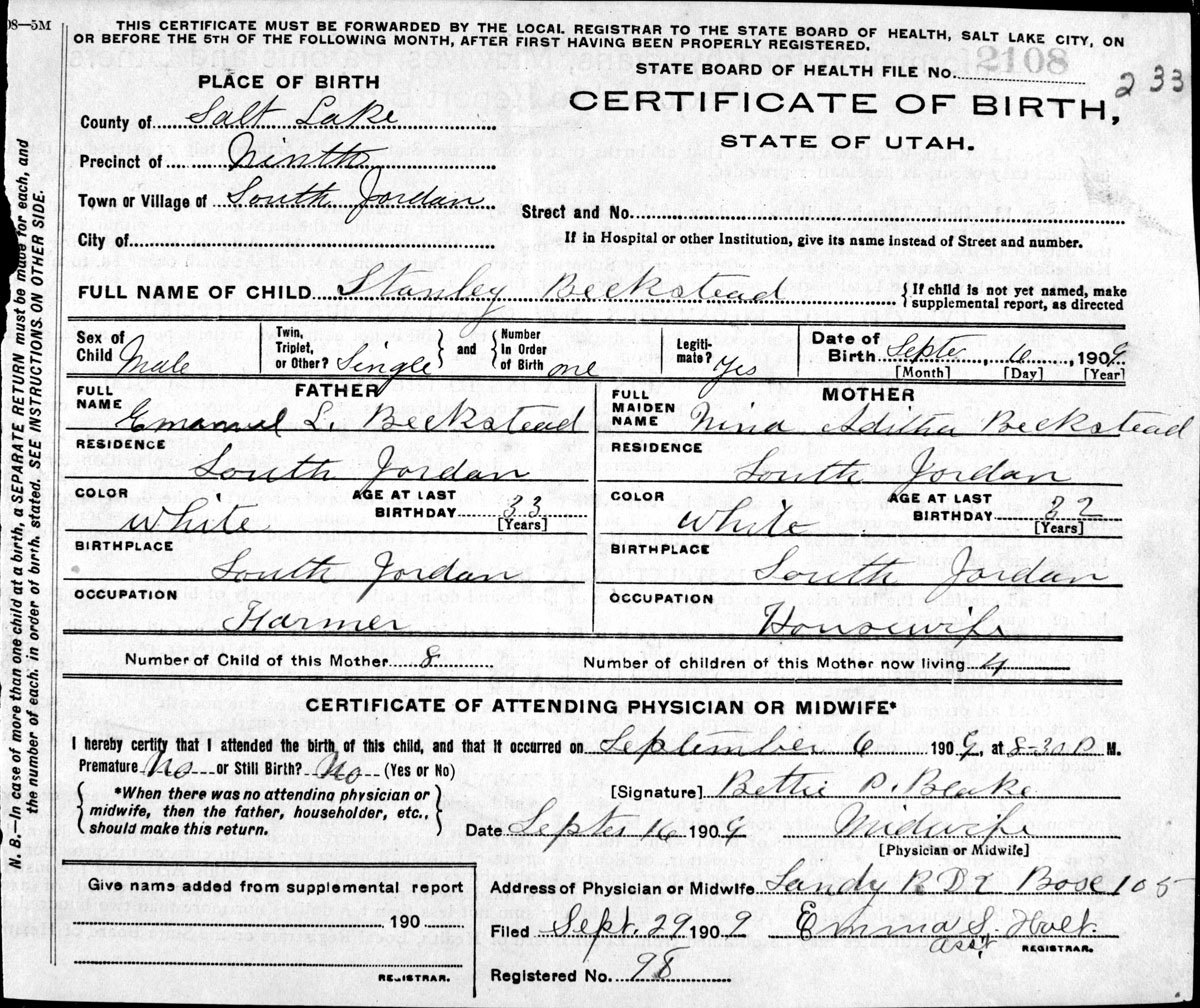 08—5M
THIS CERTIFICATE MUST BE FORWARDED BY THE LOCAL REGISTRAR TO THE STATE BOARD OF HEALTH, SALT LAKE CITY, ON
OR BEFORE THE 5TH OF THE FOLLOWING MONTH, AFTER FIRST HAVING BEEN PROPERLY REGISTERED.
STATE BOARD OF HEALTH FILE No. 2108
233
PLACE OF BIRTH
CERTIFICATE OF BIRTH,
STATE OF UTAH.
County of Salt Lake
Precinct of Ninth
Town or Village of South Jordan
Street and No.
City of
If in Hospital or other Institution, give its name instead of Street and number.
FULL NAME OF CHILD Stanley Beckstead { If child is not yet named, make supplemental report, as directed
Sex of Child Male
Twin, Triplet, or Other? Single } and { Number In Order of Birth one
Legitimate? Yes
Date of Birth Septe, 6, 1909
[Month] [Day] [Year]
FATHER
FULL NAME Emanuel L. Beckstead
RESIDENCE South Jordan
COLOR White AGE AT LAST BIRTHDAY 33 [Years]
BIRTHPLACE South Jordan
OCCUPATION Farmer
MOTHER
FULL MAIDEN NAME Nina Aditha Beckstead
RESIDENCE South Jordan
COLOR White AGE AT LAST BIRTHDAY 32 [Years]
BIRTHPLACE South Jordan
OCCUPATION Housewife
Number of Child of this Mother 8 Number of children of this Mother now living 4
CERTIFICATE OF ATTENDING PHYSICIAN OR MIDWIFE*
I hereby certify that I attended the birth of this child, and that it occurred on September 6 1909, at 8-30 P M.
Premature No or Still Birth? No (Yes or No)
{ *When there was no attending physician or midwife, then the father, householder, etc., should make this return. }
[Signature] Bettie P. Blake
Date Septer 16 1909 Midwife
[Physician or Midwife]
Give name added from supplemental report
190
REGISTRAR.
Address of Physician or Midwife Sandy R D 2 Box 105
Filed Sept. 29 1909 Emma S. Holt.
asst REGISTRAR.
Registered No. 98
N. B.—In case of more than one child at a birth, a SEPARATE RETURN must be made for each, and
the number of each, in order of birth, stated. SEE INSTRUCTIONS ON OTHER SIDE.